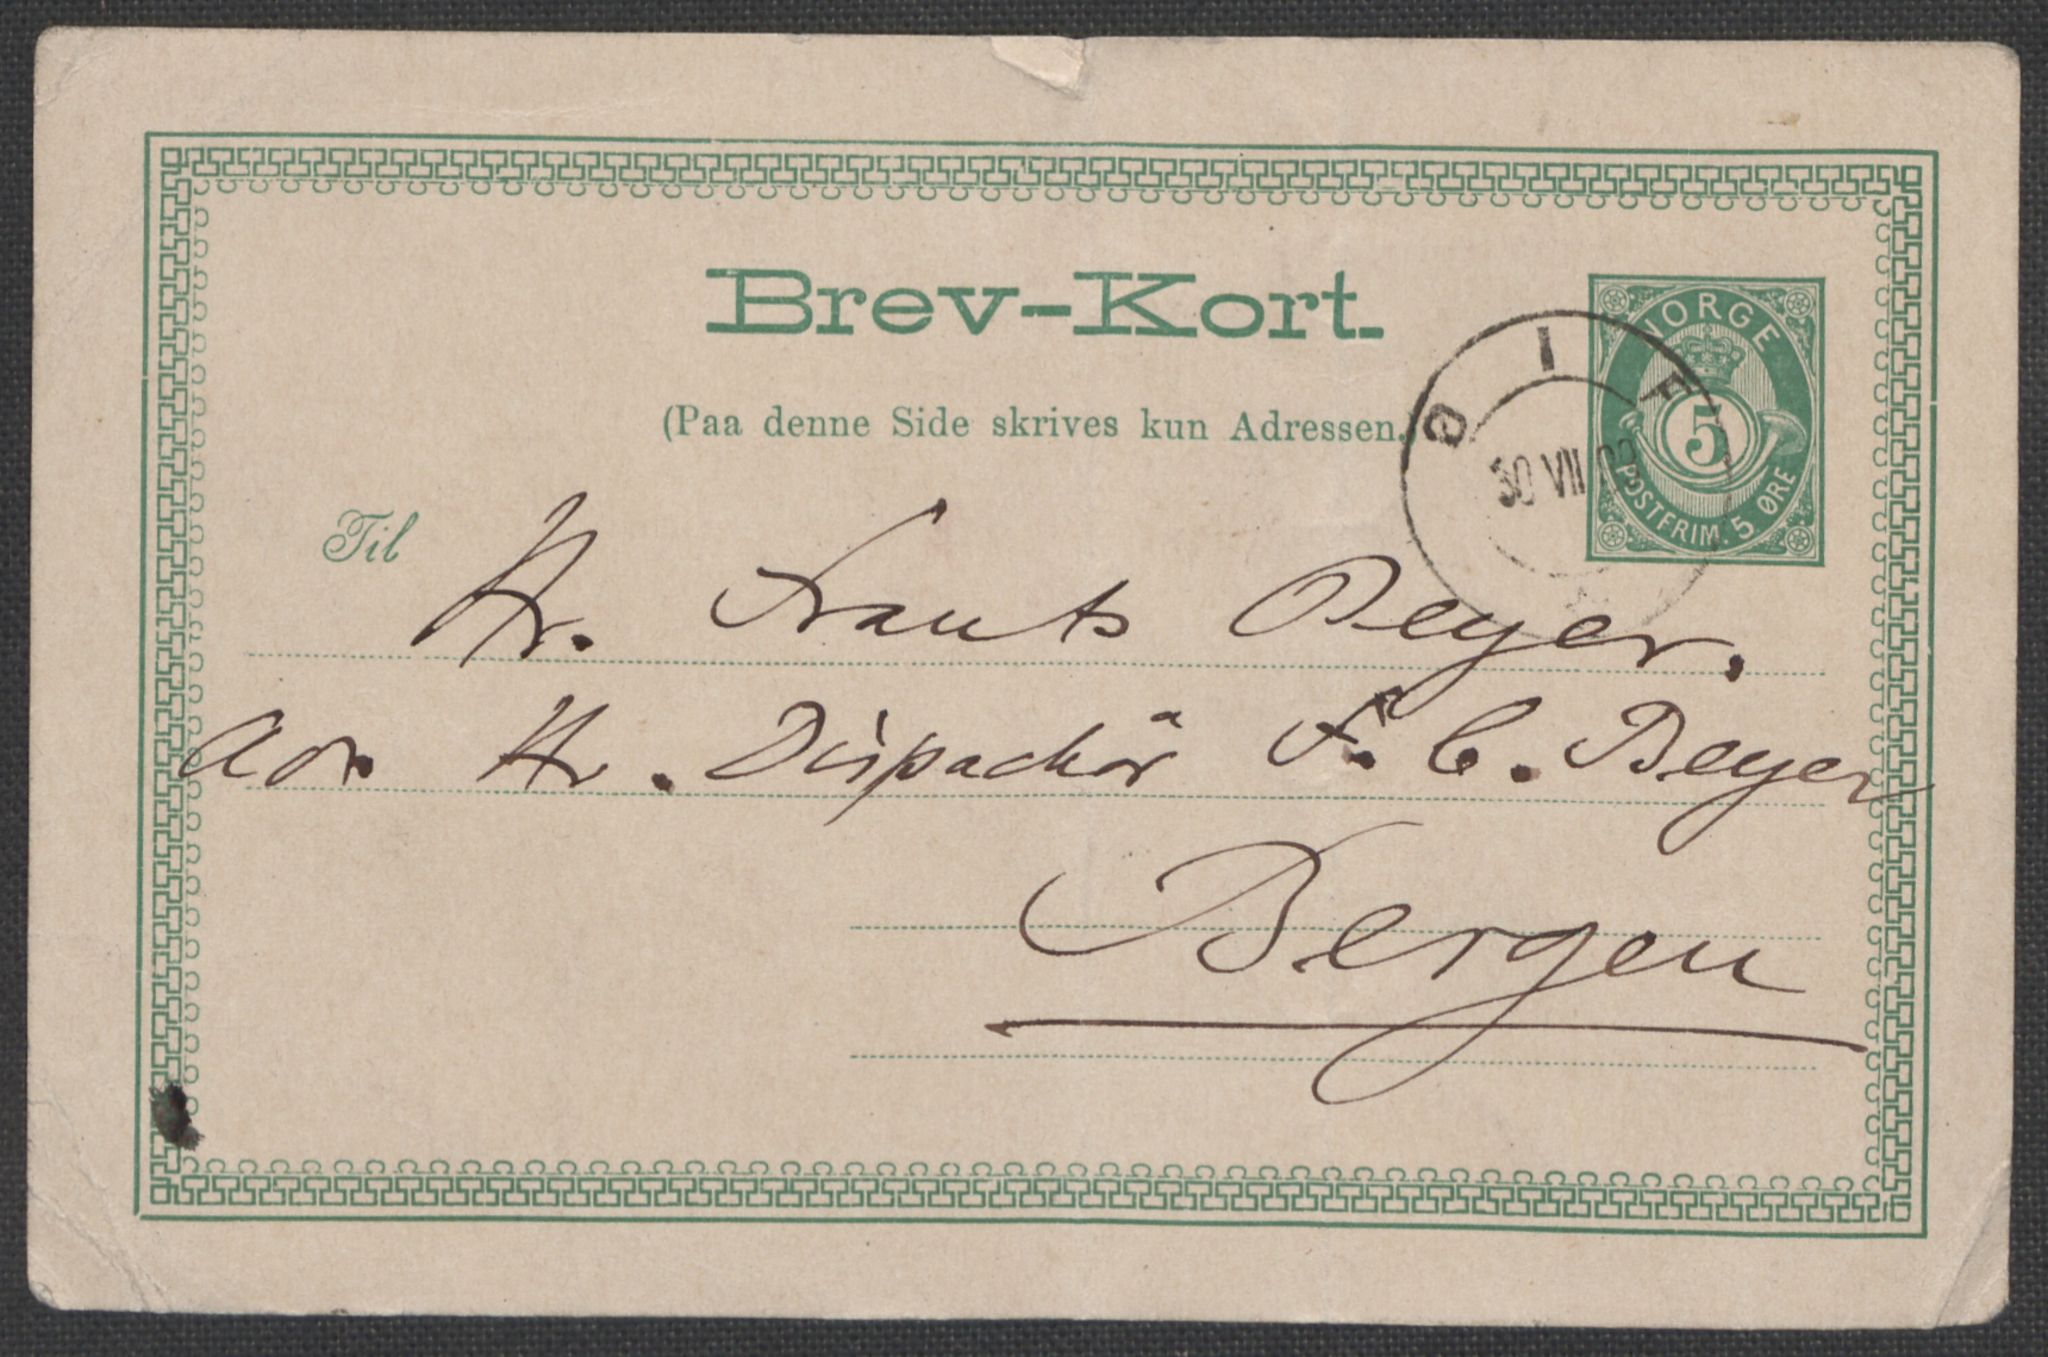 Brev-Kort.
(Paa denne Side skrives kun Adressen.)
NORGE
5
POSTFRIM. 5 ØRE
30 VII
Til
Hr. Frants Beyer.
Adr. Hr. Dispachör F. C. Beyer
Bergen